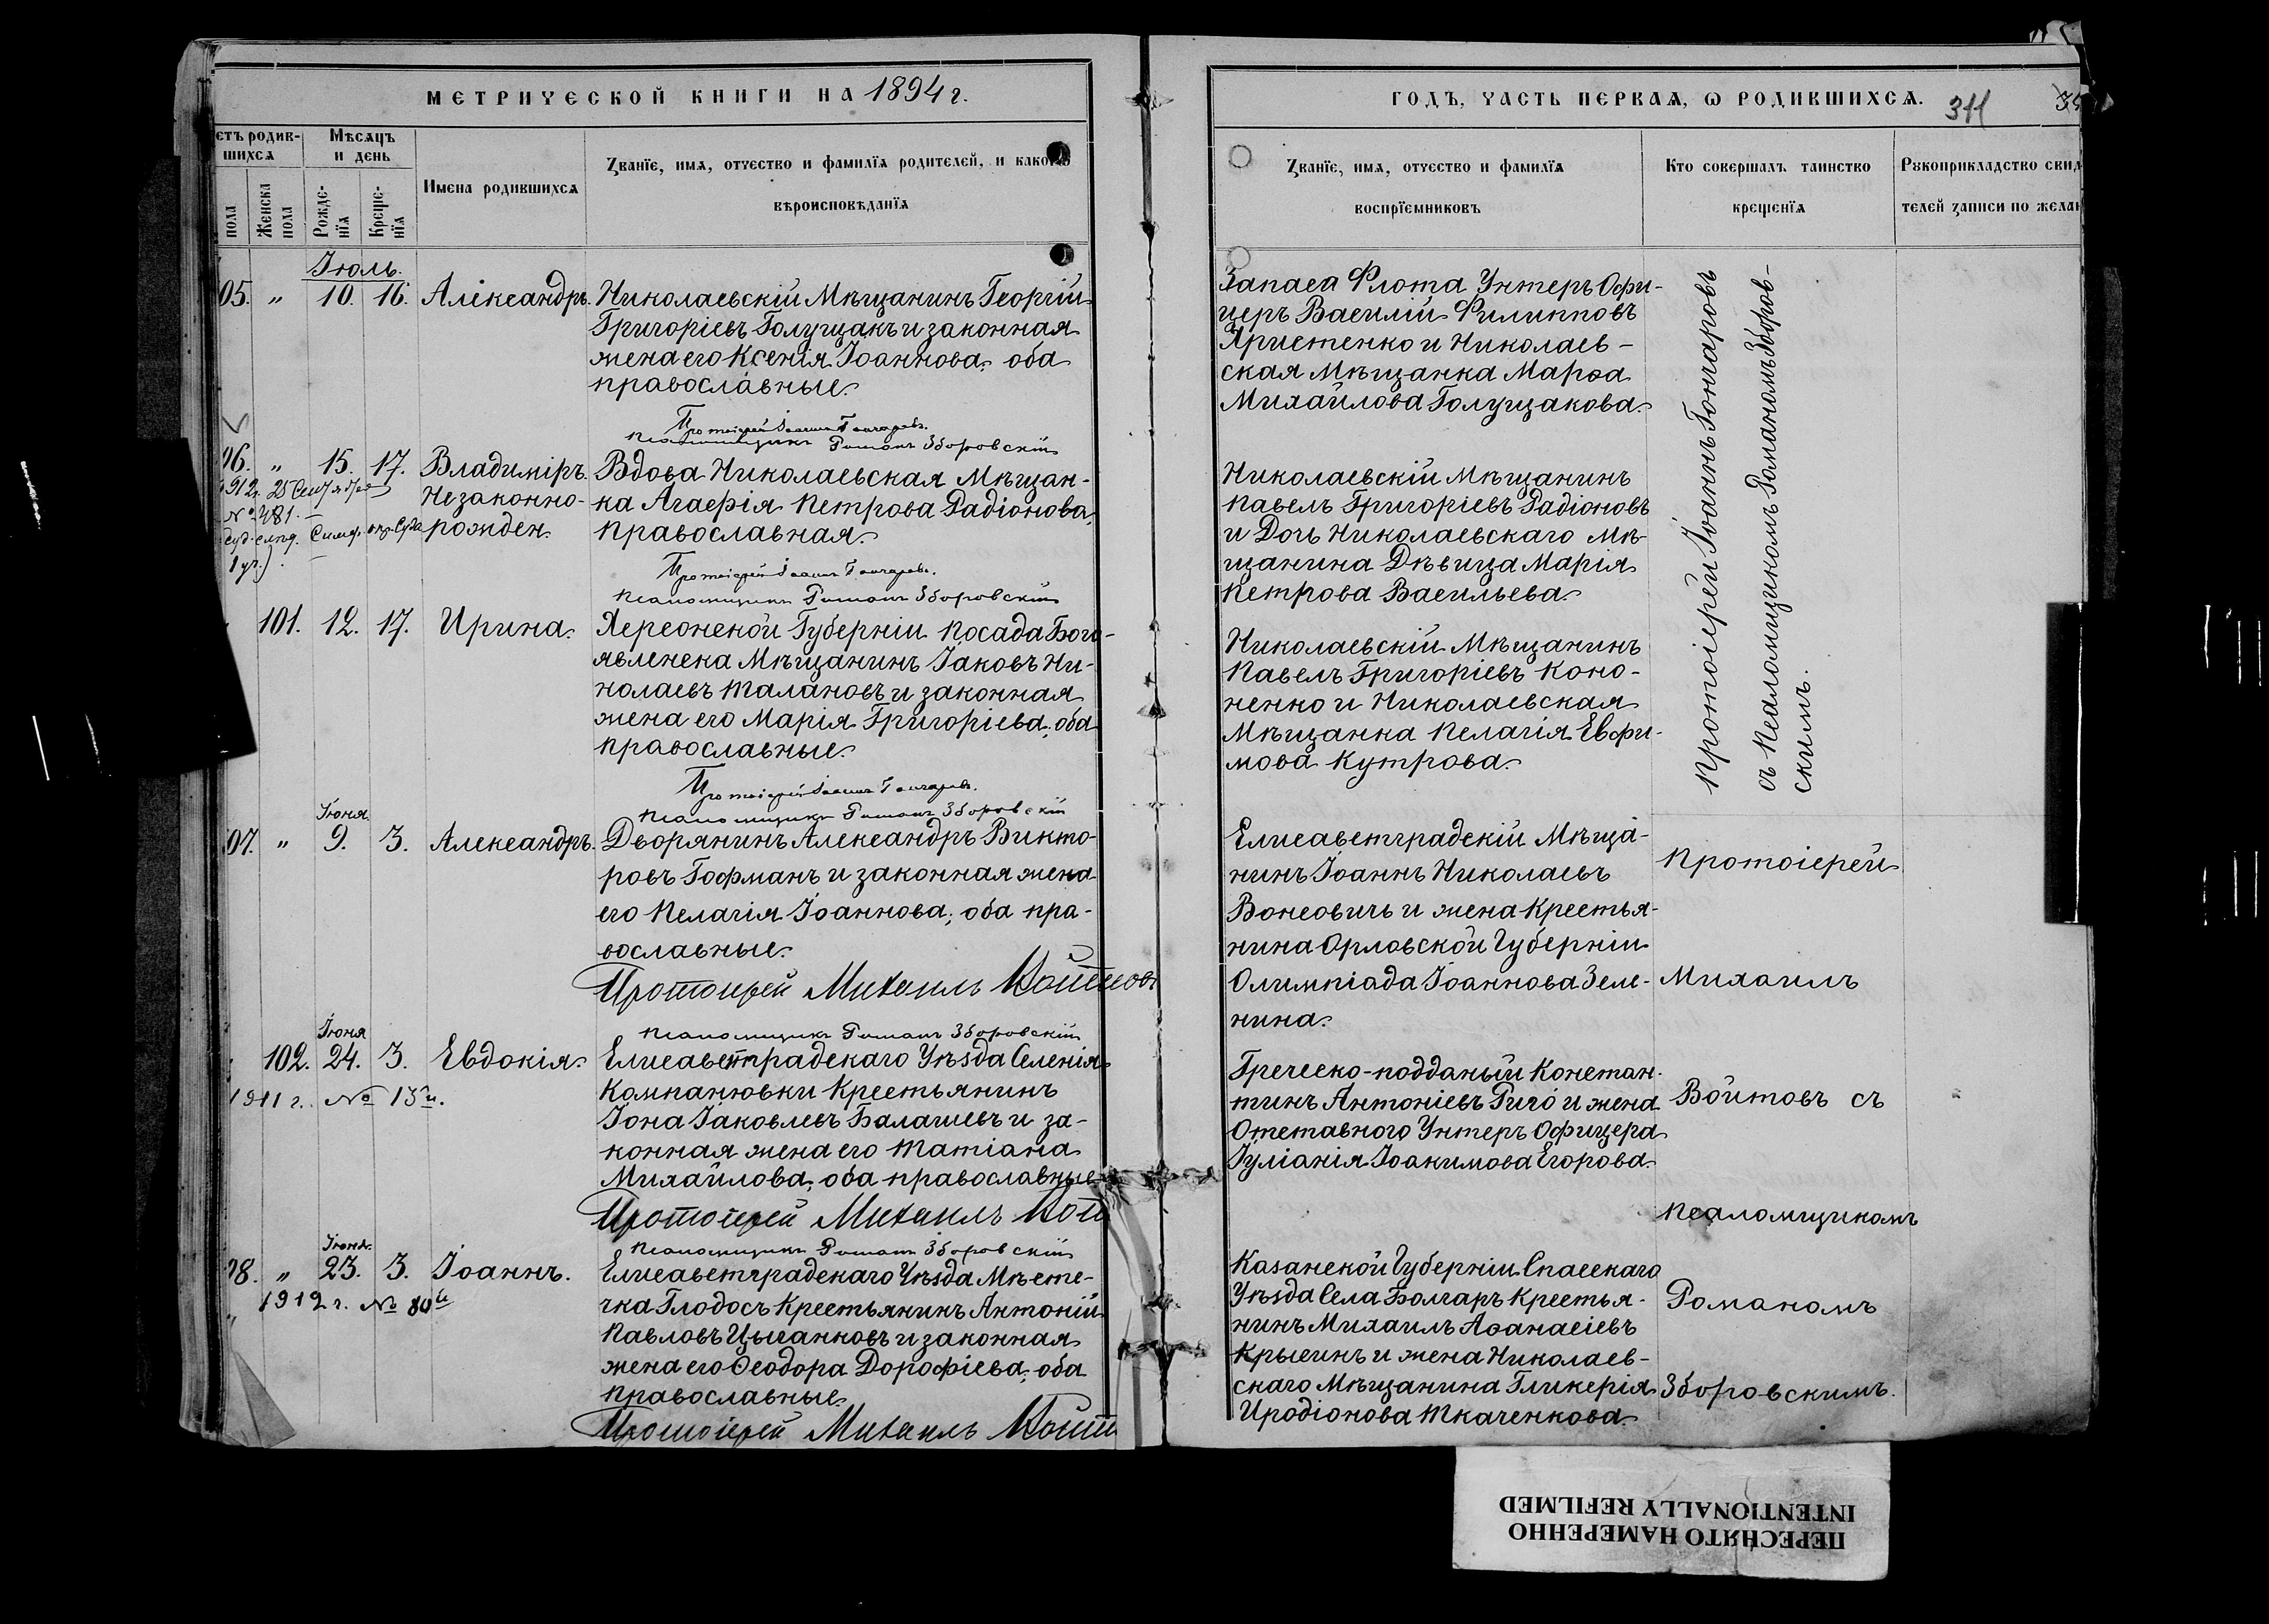 МЕТРИЧЕСКОЙ КНИГИ НА 1894 г.
етъ родив-
шихся
Мѣсяцъ
и день
пола
Женска
пола
Рожде-
нія
Креще-
нія
Имена родившихся
Званіе, имя, отчество и фамилія родителей, и какого
вѣроисповѣданія
Іюль.
05. " 10. 16. Александръ.
Николаевскій Мѣщанинъ Георгій
Григоріевъ Голущакъ и законная
жена его Ксенія Іоаннова, оба
православные.
Протоіерей Іоаннъ Гончаровъ.
Псаломщикъ Романъ Зборовскій
06. " 15. 17. Владиміръ.
Незаконно-
рожден.
1912 г. 25 Сентября
№ 481.
Вдова Николаевская Мѣщан-
ка Агафія Петрова Радіонова,
православная.
Протоіерей Іоаннъ Гончаровъ.
Псаломщикъ Романъ Зборовскій
101. 12. 17. Ирина.
Херсонской Губерніи посада Бого-
явленска Мѣщанинъ Іаковъ Ни-
колаевъ Талановъ и законная
жена его Марія Григоріева, оба
православные.
Протоіерей Іоаннъ Гончаровъ.
Псаломщикъ Романъ Зборовскій
Іюня
07. " 9. 3. Александръ.
Дворянинъ Александръ Викто-
ровъ Гофманъ и законная жена
его Пелагія Іоаннова, оба пра-
вославные.
Протоіерей Михаилъ Войтовъ
Псаломщикъ Романъ Зборовскій
Іюня
102. 24. 3. Евдокія.
1911 г. № 13й.
Елисаветградскаго Уѣзда Селенія
Компанювки Крестьянинъ
Іона Іаковлевъ Балашевъ и за-
конная жена его Татіана
Михайлова, оба православные
Протоіерей Михаилъ Войт
Псаломщикъ Романъ Зборовскій
Іюня
08. " 23. 3. Іоаннъ.
1912 г. № 80й
Елисаветградскаго Уѣзда Мѣсте-
чка Глодосъ Крестьянинъ Антоній
Павловъ Цыганковъ и законная
жена его Ѳеодора Дорофіева, оба
православные.
Протоіерей Михаилъ Войт
ГОДЪ, ЧАСТЬ ПЕРВАЯ, Ѡ РОДИВШИХСЯ.
311
Званіе, имя, отчество и фамилія
воспріемниковъ
Кто совершалъ таинство
крещенія
Рукоприкладство свид
телей записи по желан
Запаса Флота Унтеръ Офи-
церъ Василій Филипповъ
Христенко и Николаев-
ская Мѣщанка Марѳа
Михайлова Голущакова.
Николаевскій Мѣщанинъ
Павелъ Григоріевъ Радіоновъ
и Дочь Николаевскаго Мѣ-
щанина Дѣвица Марія
Петрова Васильева.
Николаевскій Мѣщанинъ
Павелъ Григоріевъ Коно-
ненко и Николаевская
Мѣщанка Пелагія Евфи-
мова Кутрова.
Протоіерей Іоаннъ Гончаровъ
съ Псаломщикомъ Романомъ Зборов-
скимъ.
Елисаветградскій Мѣща-
нинъ Іоаннъ Николаевъ
Вонсовичъ и жена Крестья-
нина Орловской Губерніи
Олимпіада Іоаннова Зеле-
нина.
Греческо-подданый Констан-
тинъ Антоніевъ Риго и жена
Отставного Унтеръ Офицера
Іуліанія Іоакимова Егорова.
Казанской Губерніи Спасскаго
Уѣзда Села Болгаръ Крестья-
нинъ Михаилъ Аѳанасіевъ
Крысинъ и жена Николаев-
скаго Мѣщанина Гликерія
Иродіонова Ткаченкова.
Протоіерей
Михаилъ
Войтовъ съ
Псаломщикомъ
Романомъ
Зборовскимъ.
ПЕРЕСНЯТО НАМЕРЕННО
INTENTIONALLY REFILMED